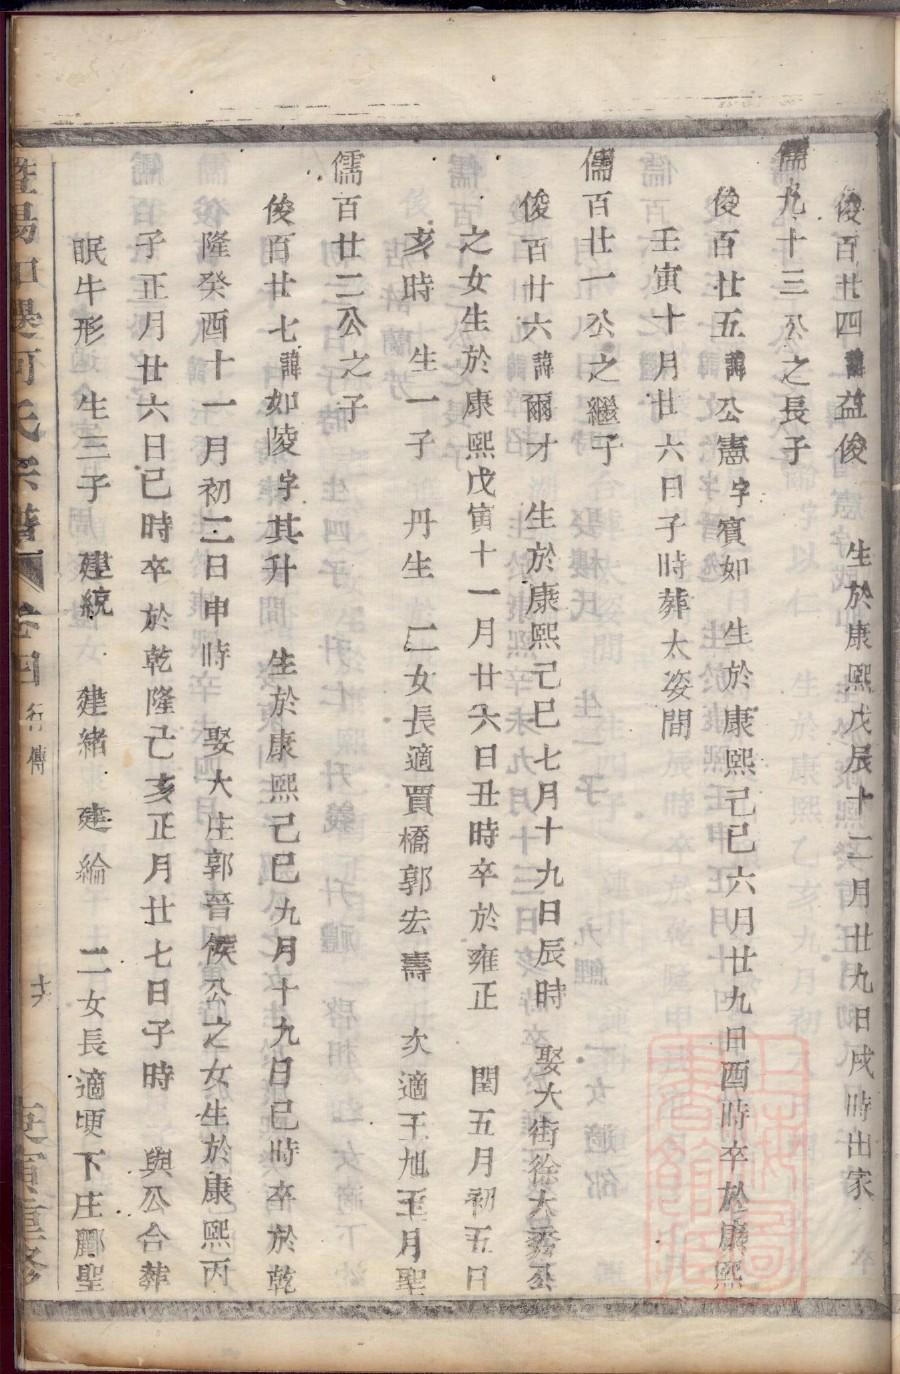 俊百廿四諱益俊 生於康熙戊辰十二月廿九日戌時出家
儒九十三公之長子
俊百廿五諱公憲字賓如 生於康熙己巳六月廿九日酉時卒於康熙
壬寅十月廿六日子時葬太姿間
儒百廿一公之繼子
俊百廿六諱爾才 生於康熙己巳七月十九日辰時 娶大街徐大秀公
之女生於康熙戊寅十一月廿六日丑時卒於雍正 閏五月初五日
亥時 生一子 丹生 二女長適賈橋郭宏壽 次適王旭至月聖
儒百廿二公之子
俊百廿七諱如陵字其升 生於康熙己巳九月十九日巳時卒於乾
隆癸酉十一月初二日申時 娶大庄郭晉侯公之女生於康熙丙
子正月廿六日巳時卒於乾隆己亥正月廿七日子時 與公合葬
眠牛形 生三子 建統 建緒 建綸 二女長適埂下庄酈聖
暨陽 何氏宗譜 卷四 行傳 十六 重修